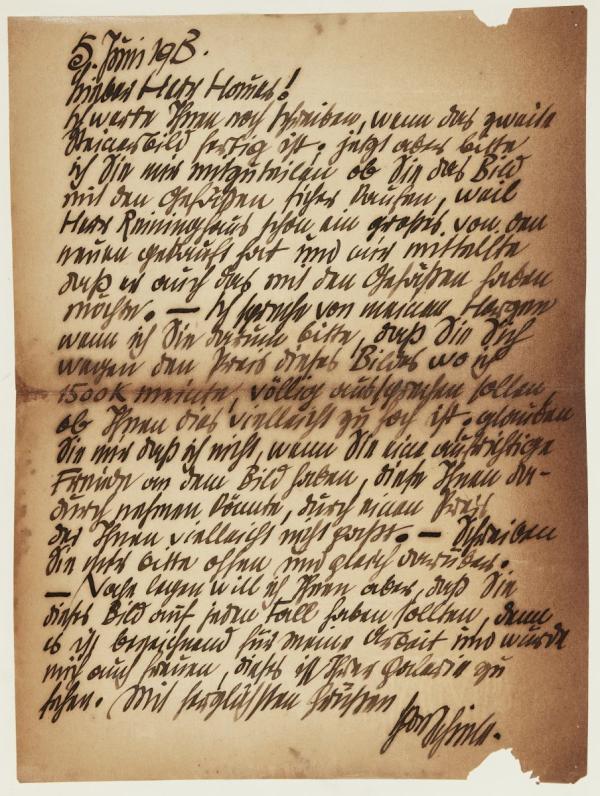 5. Juni 1913.
Lieber Herr Hauer!
Ich werde Ihnen noch schreiben, wenn das zweite
Steinerbild fertig ist. jetzt aber bitte
ich Sie mir mitzuteilen ob Sie das Bild
mit den Gefäßen sicher kaufen, weil
Herr Reininghaus schon ein großes von den
neuen gekauft hat und mir mitteilte
daß er auch das mit den Gefäßen haben
möchte. — Ich spreche von meinem Herzen
wenn ich Sie darum bitte, daß Sie Sich
wegen den Preis dieses Bildes wo ich
1500 K meinte, völlig aussprechen sollen,
ob Ihnen dies vielleicht zu hoch ist. glauben
Sie mir daß ich nicht, wenn Sie eine aufrichtige
Freude an dem Bild haben, diese Ihnen da-
durch nehmen könnte, durch einen Preis
der Ihnen vielleicht nicht paßt. — Schreiben
Sie mir bitte offen und gleich darüber.
— Nahe legen will ich Ihnen aber, daß Sie
dieses Bild auf jeden Fall haben sollten, denn
es ist bezeichnend für meine Arbeit und würde
mich auch freuen, dieses in Ihrer Galerie zu
sehen. Mit herzlichsten Grüßen
Egon Schiele.